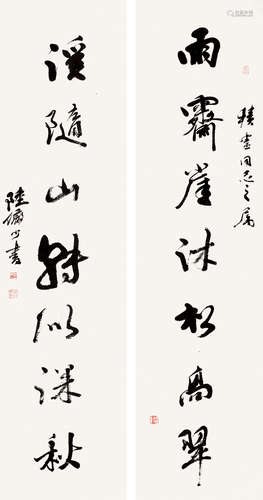 同志之屬
雨霽崖沐松高翠
溪隨山轉似深秋
陸儼少書